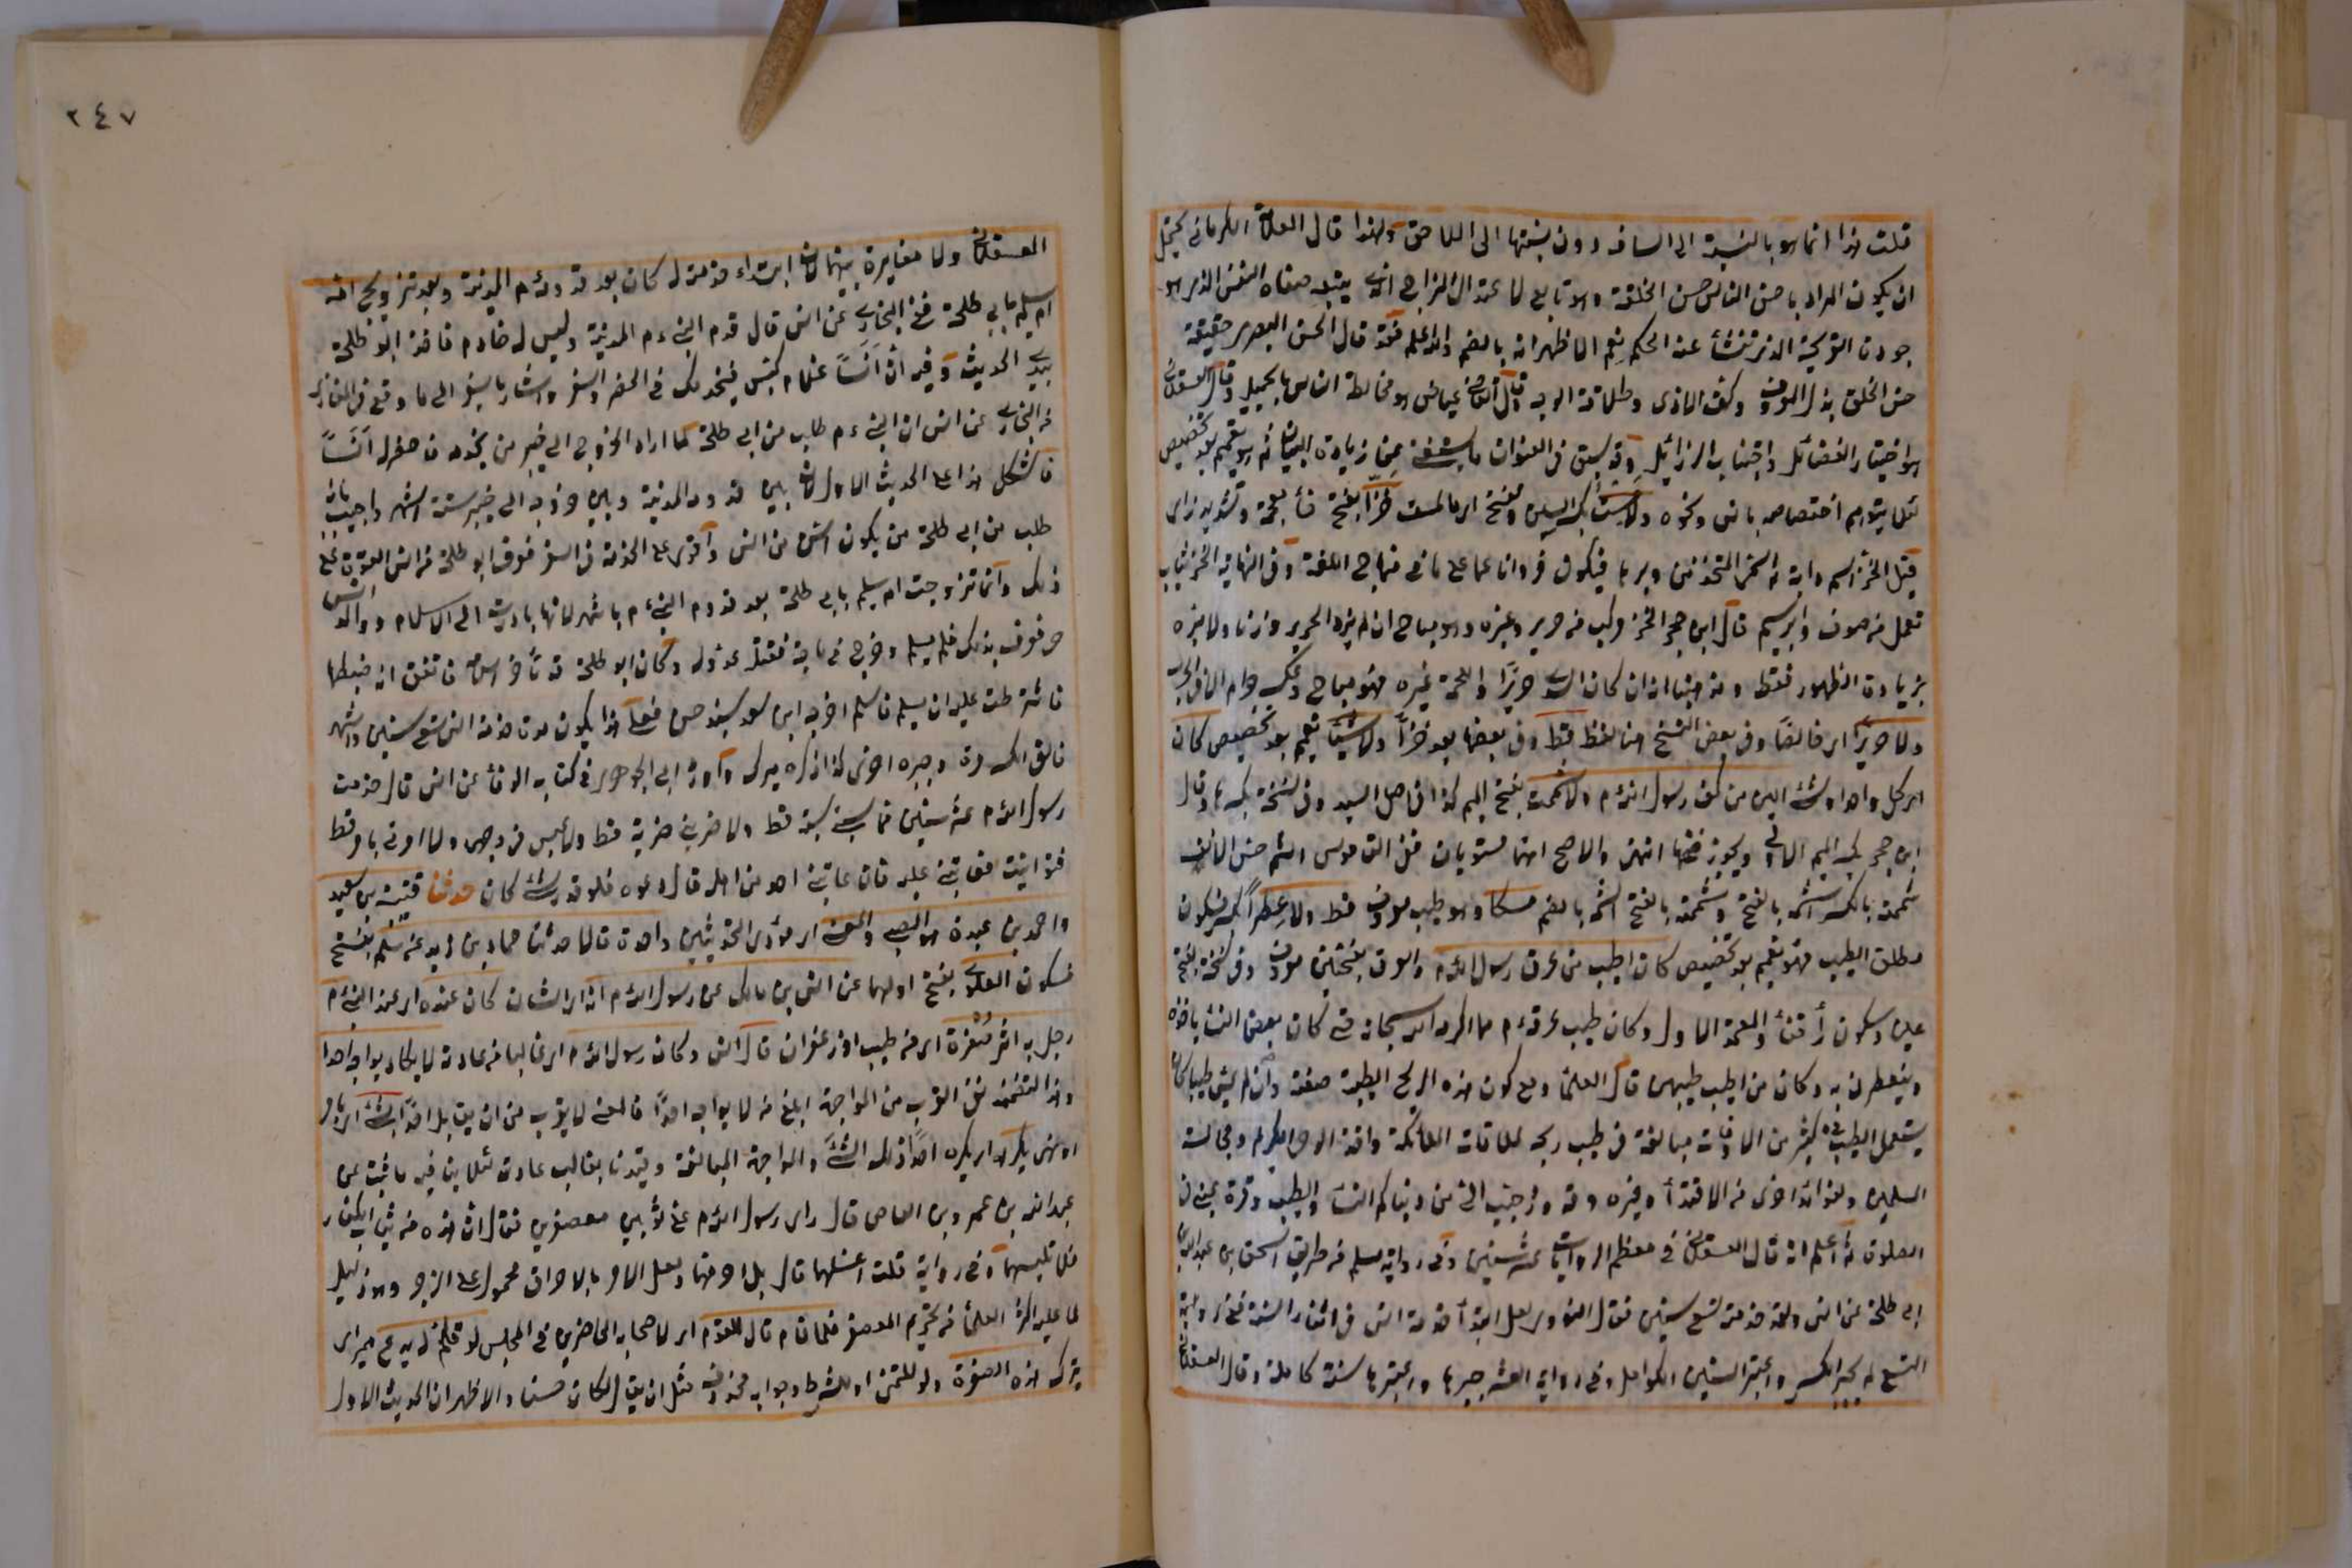 قلت هذا انما هو بالنسبة الى السابق دون نسبتها الى اللاحق ولهذا قال العلامة الكرماني يحتمل
ان يكون المراد باحسن الناس حسن الخلقة وهو تابع لاعتدال المزاج الذي يتبعه صفاء النفس الذي هو
جودة القريحة الذي تنشأ عنه الحكم نعم الاظهر انه بالضم والله اعلم فقد قال الحسن البصري حقيقة
حسن الخلق بذل المعروف وكف الاذى وطلاقة الوجه وقال القاضي عياض هو مخالطة الناس بالجميل وقال العسقلاني
هو اختيار الفضائل واجتناب الرذائل وقد سبق في العنوان زيادة البيان ثم هو تعميم بعد تخصيص
لئلا يتوهم اختصاصه بانس ونحوه ولا مسست بكسر السين وتفتح اي ما لمست خزا بفتح خاء معجمة وتشديد زاي
قيل الخز اسم دابة ثم اسم المتخذ من وبرها فيكون فروا ناعما على ما في منهاج اللغة وفي النهاية الخز ثياب
تعمل من صوف وابريسم قال ابن حجر الخز مركب من حرير وغيره وهو مباح ان لم يزد الحرير وزنا ولا عبرة
بزيادة الظهور فقط ومذهبنا انه ان كان السدى حريرا واللحمة غيره فهو مباح وعكسه حرام الا في الحرب
ولا حريرا اي خالصا وفي بعض النسخ هنا لفظ قط وفي بعضها بعد خزا ولا شيئا تعميم بعد تخصيص كان
اي كل واحد او شئ الين من كف رسول الله ءم ولا شممت بفتح الميم كذا في اصل السيد وفي نسخة بكسرها وقال
ابن حجر بكسر الميم الاولى ويجوز فتحها انتهى والاصح انهما مستويان ففي القاموس الشم حس الانف
شممته بالكسر اشمه بالفتح وشممته بالفتح اشمه بالضم مسكا وهو طيب معروف قط ولا عطرا فيكون
مطلق الطيب فهو تعميم بعد تخصيص كان اطيب من عرق رسول الله ءم والعرق بفتحتين معروف وفي نسخة بفتح
عين وسكون راء ففاء والمعتمد الاول وكان طيب عرقه ءم مما اكرمه الله سبحانه حتى كان بعض النساء ياخذه
ويتعطر به وكان من اطيب طيبهن قال العلماء ومع كون هذه الريح الطيبة صفته وان لم يمس طيبا كان
يستعمل الطيب في كثير من الاوقات مبالغة في طيب ريحه لملاقاة الملائكة واخذ الوحي الكريم ومجالسة
المسلمين ولفوائد اخرى من الاقتداء وغيره وقد ورد حبب الي من دنياكم النساء والطيب وقرة عيني في
الصلوة ثم اعلم انه قال العسقلاني في معظم الروايات عشر سنين وفي رواية مسلم من طريق اسحق بن عبد الله بن
ابي طلحة عن انس ولقد خدمته تسع سنين فقال النووي لعل ابتداء خدمة انس في اثناء السنة ففي رواية
التسع لم يجبر الكسر واعتبر السنين الكوامل وفي رواية العشر جبرها واعتبرها سنة كاملة وقال العسقلاني
٢٤٧
العسقلاني ولا مغايرة بينهما لان ابتداء خدمته له كان بعد قدومه ءم المدينة وبعد تزويج امه
ام سليم بابي طلحة ففي البخاري عن انس قال قدم النبي ءم المدينة وليس له خادم فاخذ ابو طلحة
بيدي الحديث وفيه ان انسا غلام كيس فيخدمك في الحضر والسفر واشار بالسفر الى ما وقع في المغازي
من البخاري عن انس ان النبي ءم طلب من ابي طلحة لما اراد الخروج الى خيبر من يخدمه فاحضر له انسا
فاشكل هذا على الحديث الاول لان بين قدومه المدينة وبين خروجه الى خيبر ستة اشهر واجيب بانه
طلب من ابي طلحة من يكون اسن من انس واقوى على الخدمة في السفر فعرف ابو طلحة من انس القوة على
ذلك وانما تزوجت ام سليم بابي طلحة بعد قدوم النبي ءم باشهر لانها بادرت الى الاسلام ووالد انس
حي فعرف بذلك فلم يسلم وخرج في حاجة فقتله عدو له وكان ابو طلحة قد تاخر اسلامه فاتفق انه خطبها
فاشترطت عليه ان يسلم فاسلم اخرجه ابن سعد بسند حسن فعلى هذا يكون مدة خدمة انس تسع سنين واشهر
فالغى الكسر مرة وجبره اخرى كذا ذكره ميرك واورد ابن الجوزي في كتابه الوفاء عن انس قال خدمت
رسول الله ءم عشر سنين فما سبني سبة قط ولا ضربني ضربة قط ولا عبس في وجهي ولا امرني بامر قط
فتوانيت فيه فعاتبني عليه فان عاتبني احد من اهله قال دعوه فلو قدر شئ كان حدثنا قتيبة بن سعيد
واحمد بن عبدة هو الضبي والمعنى اي مؤدى الحديثين واحد قالا حدثنا حماد بن زيد عن سلم بفتح
فسكون العلوي بفتح اولهما عن انس بن مالك عن رسول الله ءم انه اي الشان كان عنده اي عند النبي ءم
رجل به اثر صفرة اي من طيب او زعفران قال انس وكان رسول الله ءم اي غالبا من عادته لا يكاد يواجه احدا
وهذا لتضمنه نفي القرب من المواجهة ابلغ من لا يواجه احدا فالمعنى لا يقرب من ان يقابل احدا بشئ اي بامر
او نهي يكرهه اي يكره احد ذلك الشئ والمواجهة المبالغة وقيدنا بغالب عادته لئلا ينافيه ما ثبت عن
عبد الله بن عمرو بن العاص قال راى رسول الله ءم علي ثوبين معصفرين فقال ان هذه من ثياب الكفار
فلا تلبسهما وفي رواية قلت اغسلهما قال بل احرقهما ولعل الامر بالاحراق محمول على الزجر وهو دليل
لما عليه اكثر العلماء من تحريم المعصفر فلما قام قال للقوم اي لاصحابه الحاضرين في المجلس لو قلتم له يدع اي
يترك هذه الصفرة ولو للتمني او للشرط وجوابه محذوف مثل ان يقال لكان حسنا والاظهر ان الحديث الاول